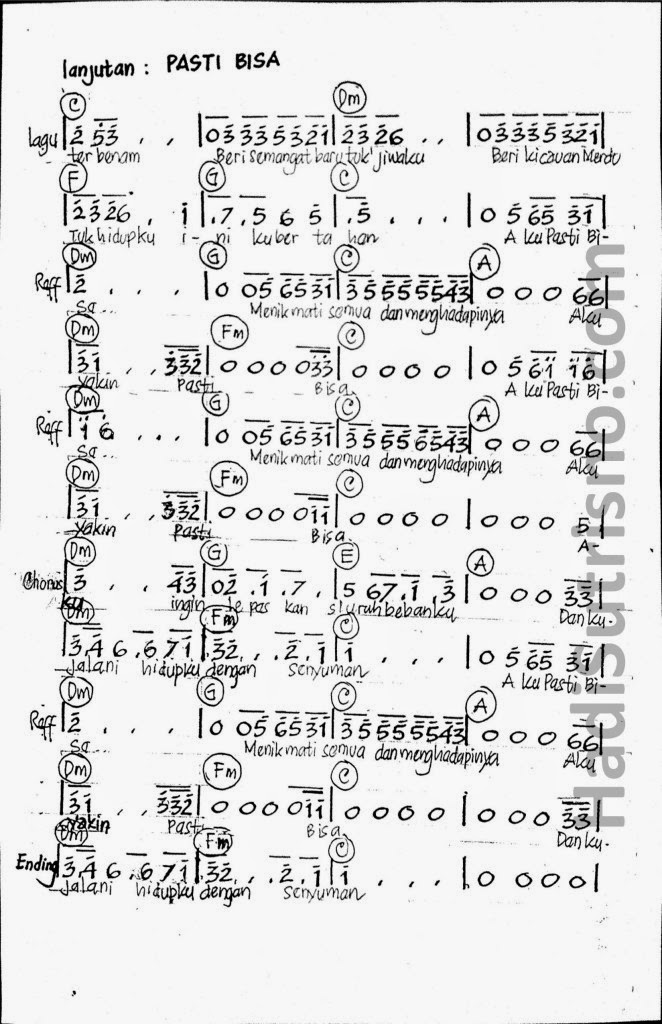 lanjutan : PASTI BISA
C Dm
Lagu | 2 53 . . | 03335321 | 2326 . . | 03335321 |
ter benam Beri semangat baru tuk' jiwaku Beri kicauan Merdu
F G C
| 2326 . i | . 7 . 5 6 5 | . 5 . . . | 0 5 65 31 |
Tuk hidupku i - ni ku ber ta han A ku Pasti Bi-
Dm G C A
Raff | 2 . . . | 0 05 6531 | 35555543 | 0 0 0 66 |
Sa... Menikmati semua dan menghadapinya Aku
Dm Fm C
| 31 . . 332 | 0 0 0 033 | 0 0 0 0 | 0 5 61 16 |
Yakin Pasti Bisa A ku Pasti Bi-
Dm G C A
Raff | i 6 . . . | 0 05 6531 | 35556543 | 0 0 0 66 |
Sa... Menikmati semua dan menghadapinya Aku
Dm Fm C
| 31 . . 332 | 0 0 0 011 | 0 0 0 0 | 0 0 0 5 |
Yakin Pasti Bisa. A-
Dm G E A
Chorus | 3 . . 43 | 02 . 1 . 7 . | 5 67 . 1 . 3 | 0 0 0 33 |
ku ingin le pas kan sluruh bebanku Danku-
Dm Fm C
| 3.46 . 671 | 32 . . 2 . 1 | i . . . | 0 5 65 31 |
Jalani hidupku dengan senyuman A ku Pasti Bi-
Dm G C A
Raff | 2 . . . | 0 05 6531 | 35555543 | 0 0 0 66 |
Sa... Menikmati semua dan menghadapinya Aku
Dm Fm C
| 31 . . 332 | 0 0 0 011 | 0 0 0 0 | 0 0 0 33 |
Yakin Pasti Bisa. Danku-
Dm Fm C
Ending | 3.46 . 671 | 32 . . 2 . 1 | i . . . | 0 0 0 0 |
Jalani hidupku dengan senyuman
Hadisutrisno.com